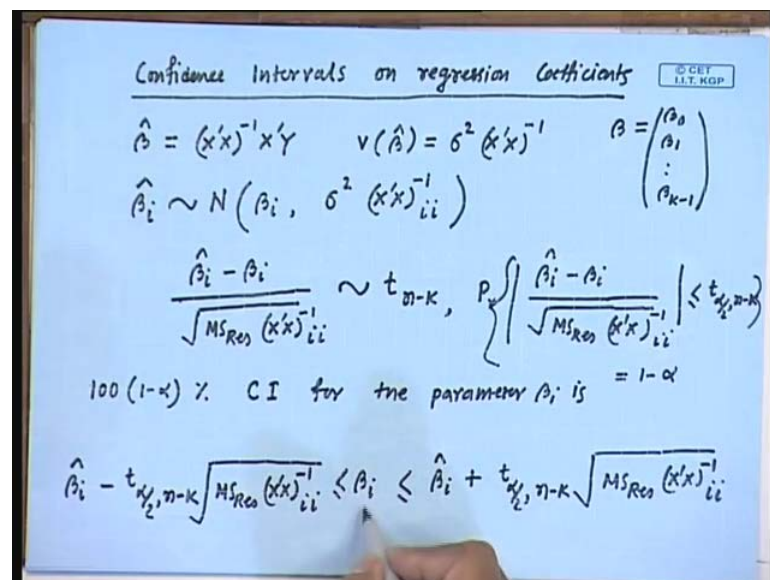 Confidence Intervals on regression Coefficients
© CET
I.I.T. KGP
β̂ = (x'x)⁻¹x'Y    V(β̂) = σ² (x'x)⁻¹    β = (β₀ β₁ : βₖ₋₁)
β̂ᵢ ~ N(βᵢ, σ² (x'x)⁻¹ᵢᵢ)
(β̂ᵢ - βᵢ) / √(MS_Res (x'x)⁻¹ᵢᵢ) ~ t_{n-k}, Pr{ | (β̂ᵢ - βᵢ) / √(MS_Res (x'x)⁻¹ᵢᵢ) | ≤ t_{α/2, n-k} }
= 1-α
100 (1-α) % CI for the parameter βᵢ is
β̂ᵢ - t_{α/2, n-k} √(MS_Res (x'x)⁻¹ᵢᵢ) ≤ βᵢ ≤ β̂ᵢ + t_{α/2, n-k} √(MS_Res (x'x)⁻¹ᵢᵢ)